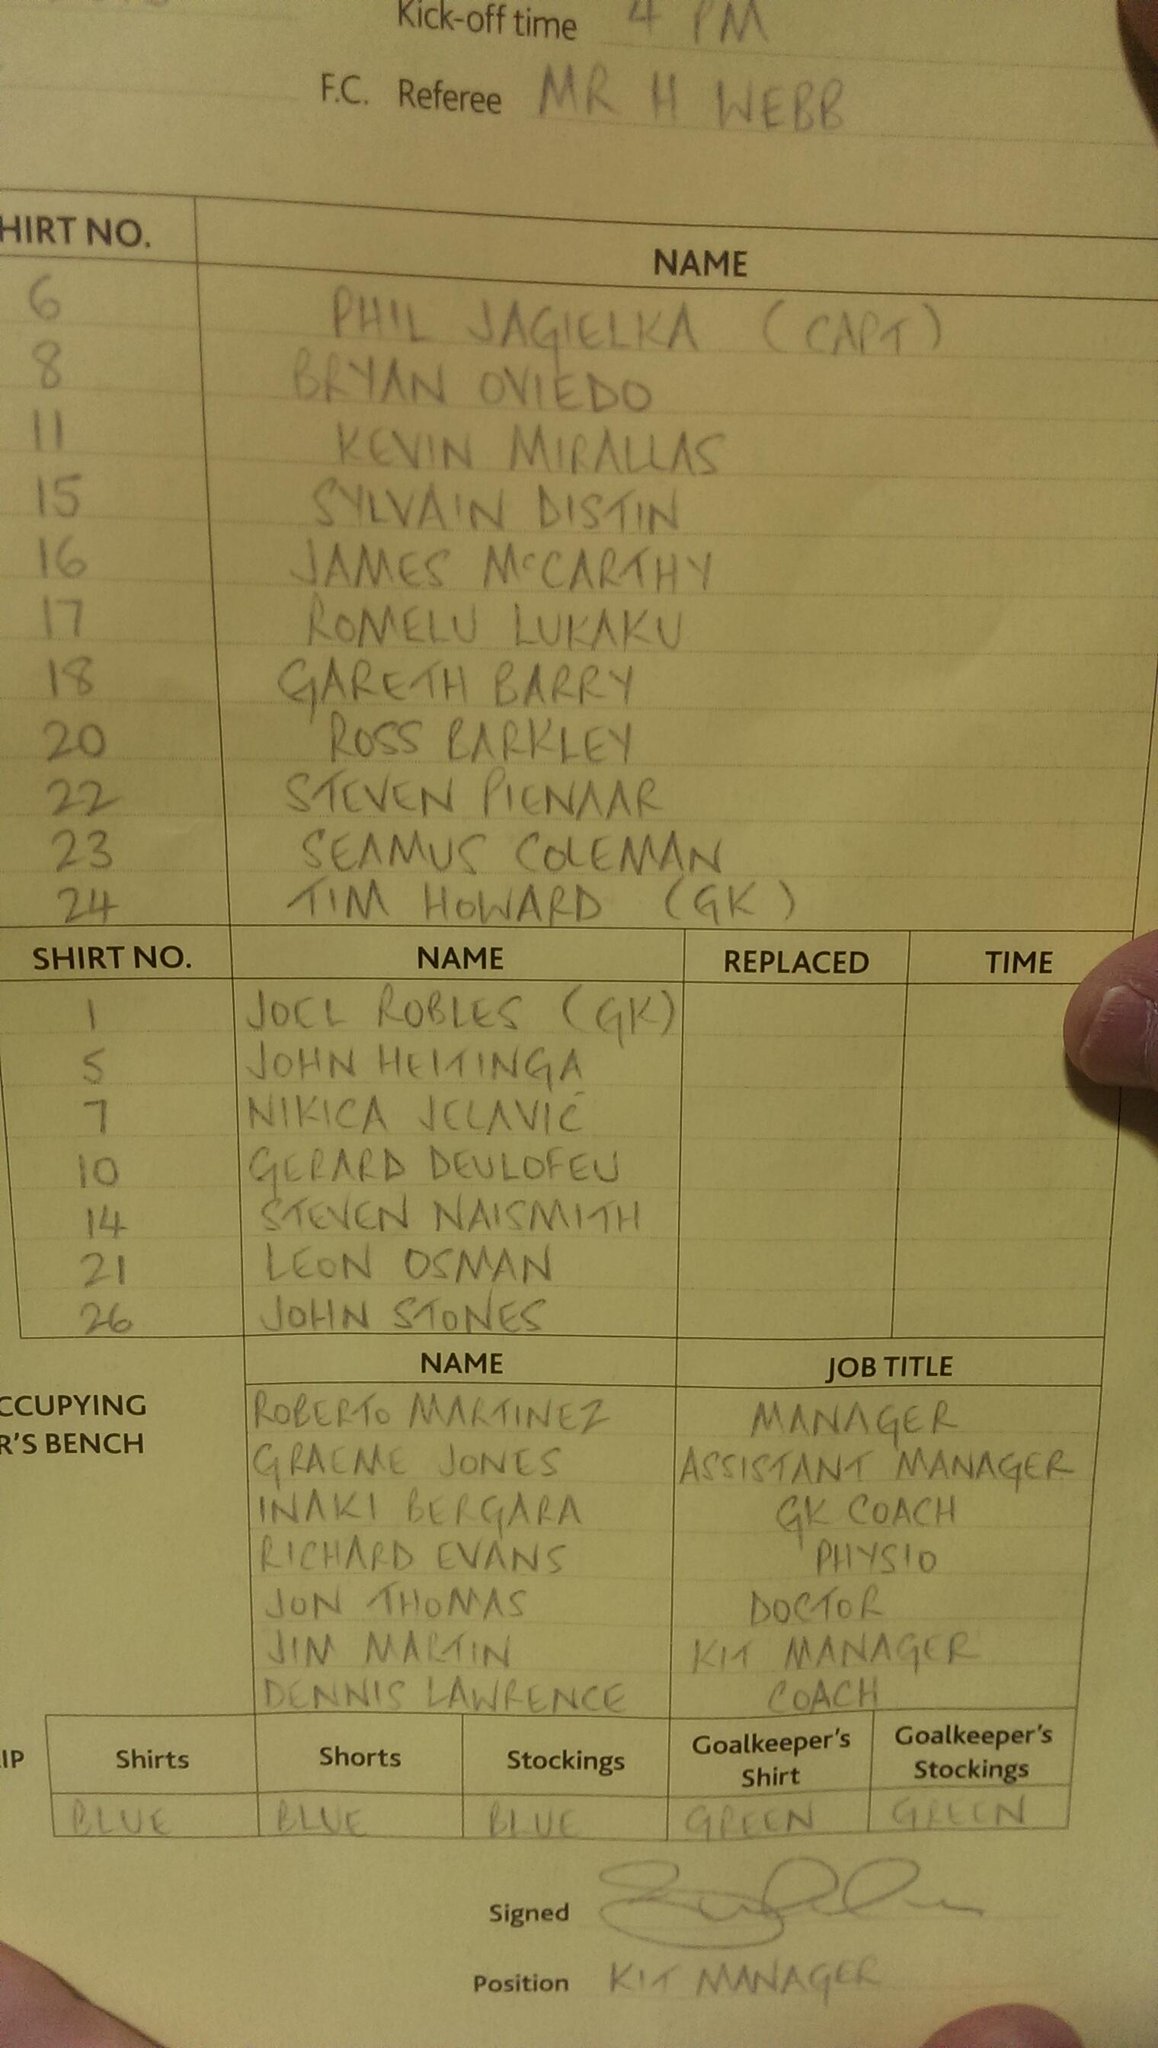 Kick-off time 4 PM
F.C. Referee MR H WEBB
HIRT NO. NAME
6 PHIL JAGIELKA (CAPT)
8 BRYAN OVIEDO
11 KEVIN MIRALLAS
15 SYLVAIN DISTIN
16 JAMES McCARTHY
17 ROMELU LUKAKU
18 GARETH BARRY
20 ROSS BARKLEY
22 STEVEN PIENAAR
23 SEAMUS COLEMAN
24 TIM HOWARD (GK)
SHIRT NO. NAME REPLACED TIME
1 JOEL ROBLES (GK)
5 JOHN HEITINGA
7 NIKICA JELAVIĆ
10 GERARD DEULOFEU
14 STEVEN NAISMITH
21 LEON OSMAN
26 JOHN STONES
NAME JOB TITLE
CCUPYING ROBERTO MARTINEZ MANAGER
R'S BENCH GRAEME JONES ASSISTANT MANAGER
INAKI BERGARA GK COACH
RICHARD EVANS PHYSIO
JON THOMAS DOCTOR
JIM MARTIN KIT MANAGER
DENNIS LAWRENCE COACH
IP Shirts Shorts Stockings Goalkeeper's Shirt Goalkeeper's Stockings
BLUE BLUE BLUE GREEN GREEN
Signed
Position KIT MANAGER